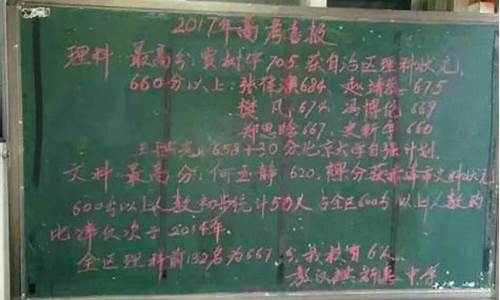 2017年高考喜报
理科:最高分:贾树华 705.获自治区理科状元,
660分以上:张 684. 赵 675
樊 凤 674. 冯博 669
郑思 667. 史新华 660
王 658+30分北京大学自强计划.
文科:最高分:何孟静 620,裸分获 文科状元
600分以上人数初步统计50人占全区600分以上人数的
比率仅次于2014年.
全区理科前132名为667分,我校有6人
新县中学